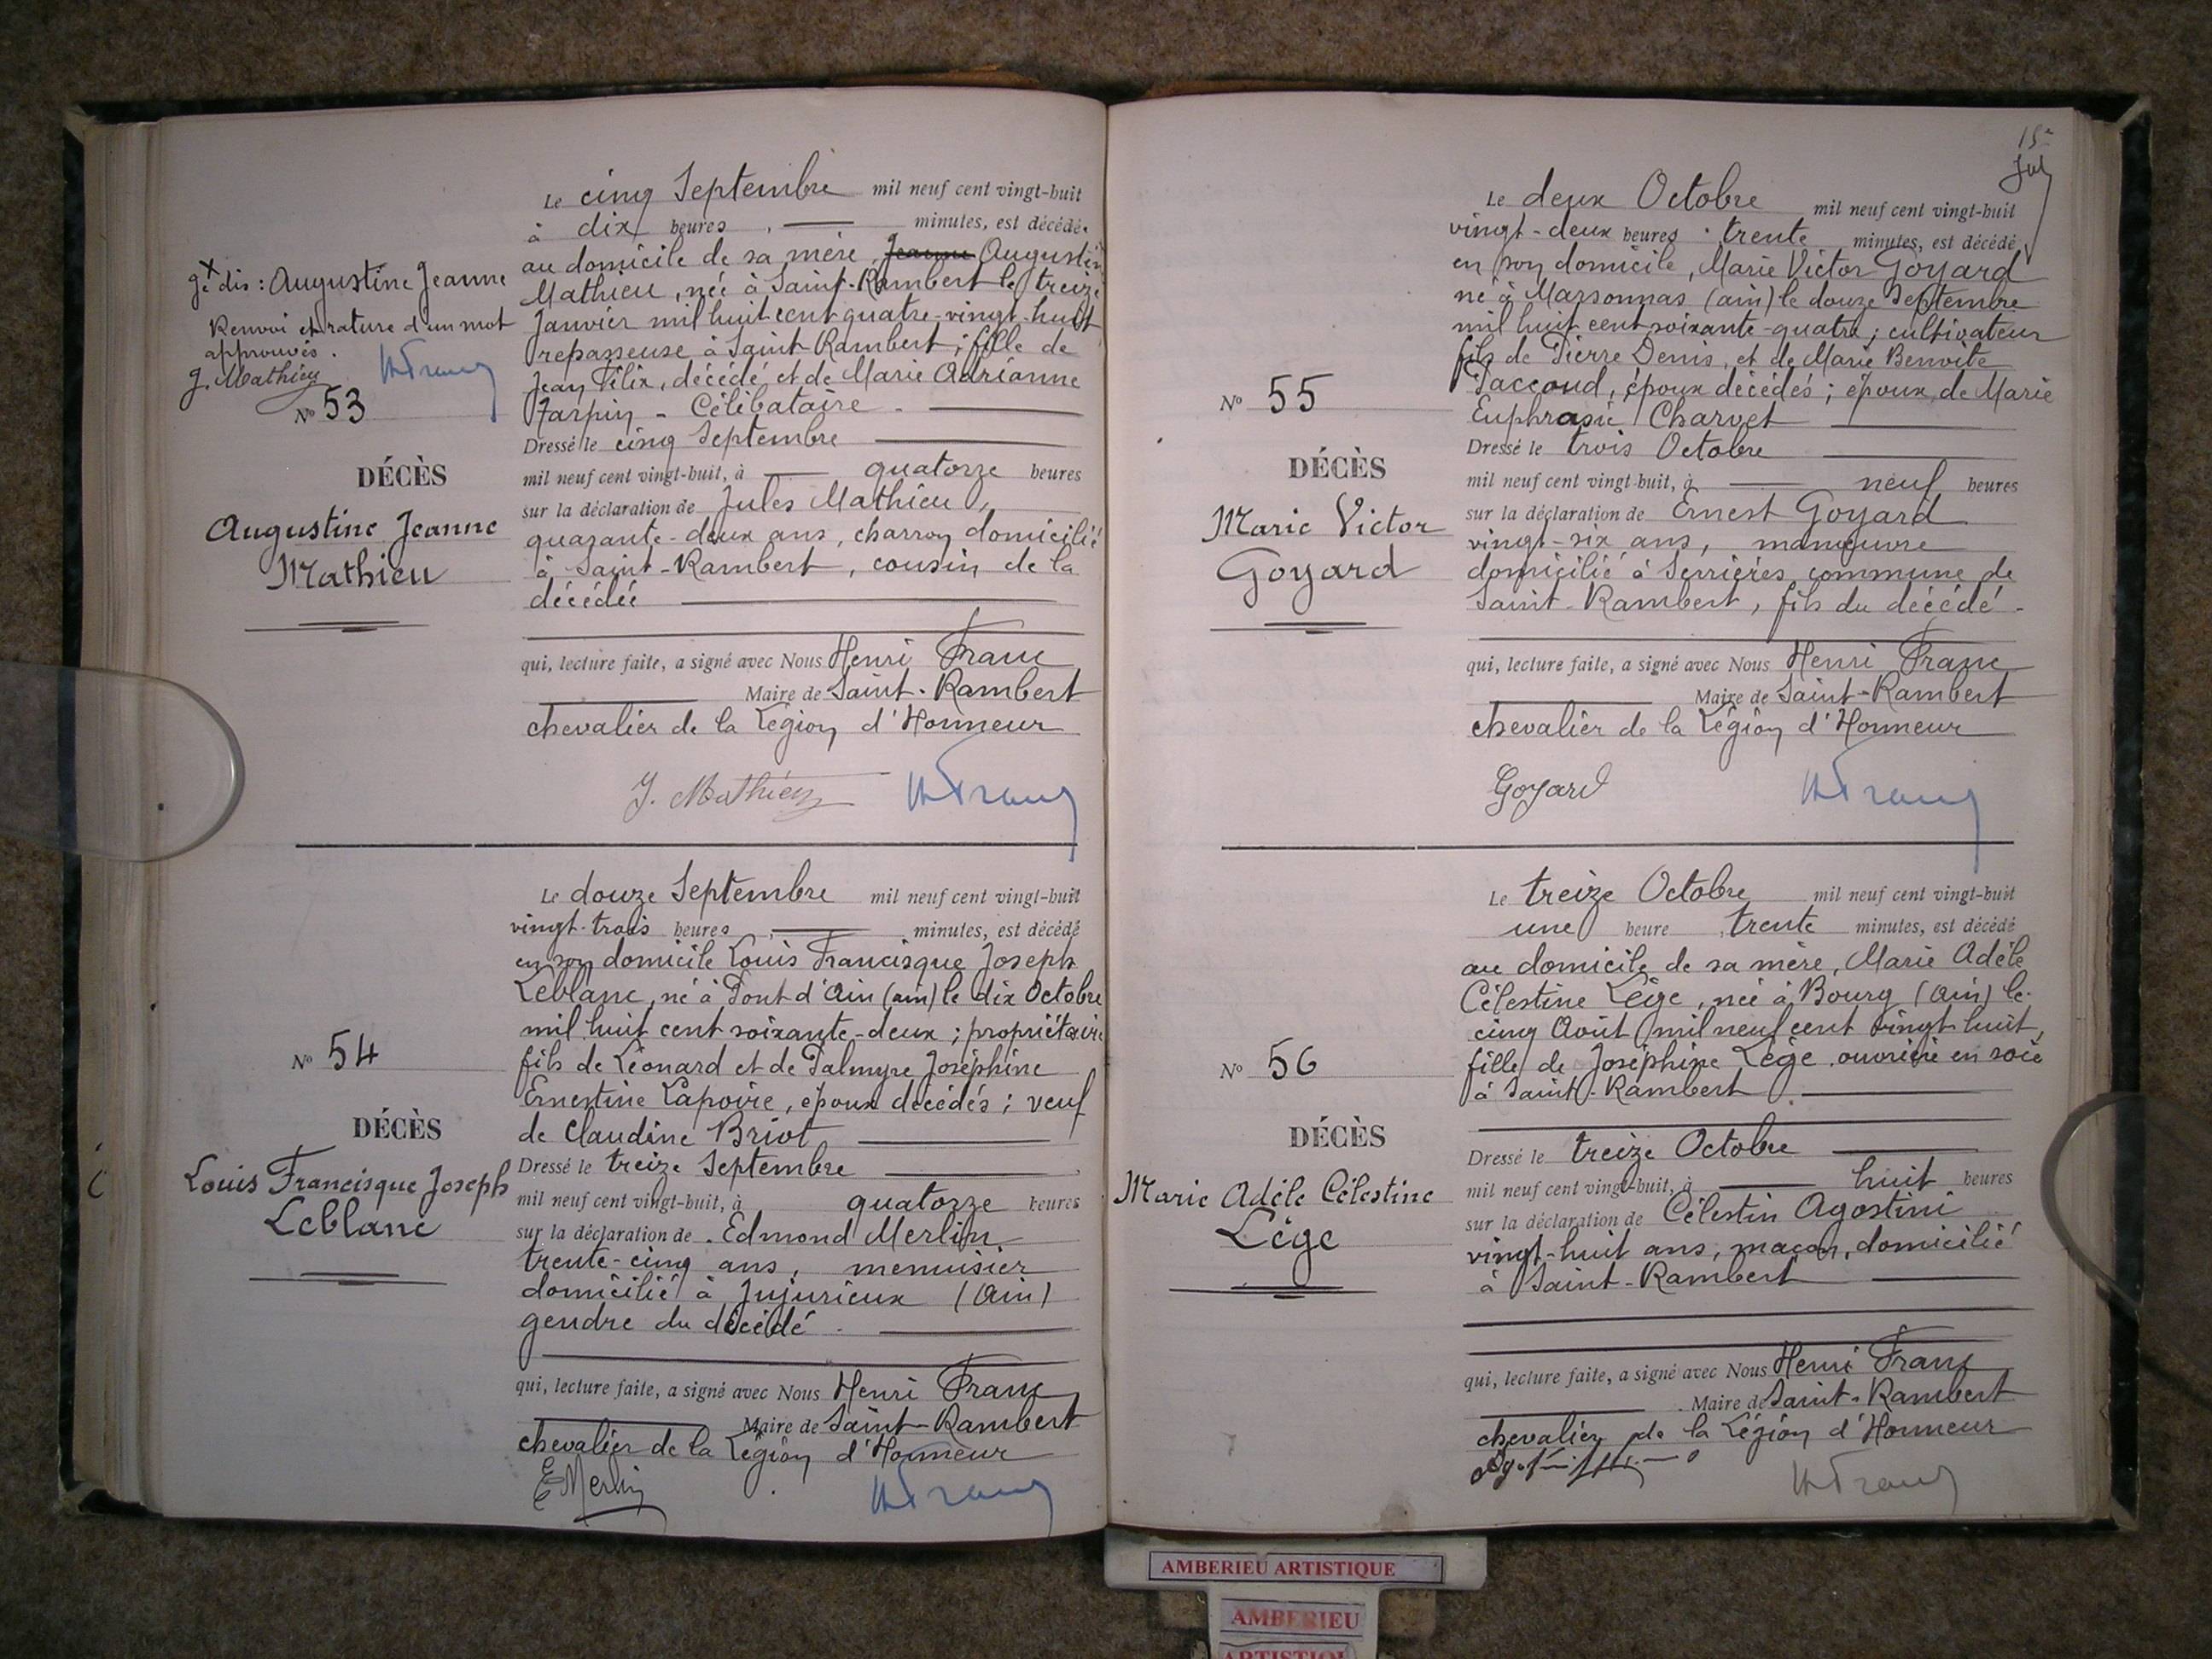 Le cinq Septembre mil neuf cent vingt-huit
à dix heures, minutes, est décédé
au domicile de sa mère, Jeanne Augustine
Mathieu, née à Saint-Rambert le treize
Janvier mil huit cent quatre-vingt-huit
repasseuse à Saint-Rambert; fille de
Jean Félix, décédé et de Marie Adrianne
Tarpin - Célibataire.
Dressé le cinq Septembre
mil neuf cent vingt-huit, à quatorze heures
sur la déclaration de Jules Mathieu,
quarante-deux ans, charron domicilié
à Saint-Rambert, cousin de la
décédée
qui, lecture faite, a signé avec Nous Henri Franc
Maire de Saint-Rambert
chevalier de la Légion d'Honneur
J. Mathieu HFranc
Je dis: Augustine Jeanne
Renvoi et rature d'un mot
approuvés.
J. Mathieu HFranc
No 53
DÉCÈS
Augustine Jeanne
Mathieu
Le douze Septembre mil neuf cent vingt-huit
vingt-trois heures, minutes, est décédé
en son domicile Louis Francisque Joseph
Leblanc, né à Pont d'Ain (ain) le dix Octobre
mil huit cent soixante-deux; propriétaire
fils de Léonard et de Palmyre Joséphine
Ernestine Lapoire, époux décédés; veuf
de Claudine Briot
Dressé le treize Septembre
mil neuf cent vingt-huit, à quatorze heures
sur la déclaration de Edmond Merlin
trente-cinq ans, menuisier
domicilié à Jujurieux (Ain)
gendre du décédé.
qui, lecture faite, a signé avec Nous Henri Franc
Maire de Saint-Rambert
chevalier de la Légion d'Honneur
E Merlin HFranc
No 54
DÉCÈS
Louis Francisque Joseph
Leblanc
15e
Le deux Octobre mil neuf cent vingt-huit
vingt-deux heures trente minutes, est décédé
en son domicile, Marie Victor Goyard
né à Marsonnas (ain) le douze Septembre
mil huit cent soixante-quatre; cultivateur
fils de Pierre Denis, et de Marie Benoite
Jaccoud, époux décédés; époux de Marie
Euphrasie Charvet
Dressé le trois Octobre
mil neuf cent vingt-huit, à neuf heures
sur la déclaration de Ernest Goyard
vingt-six ans, manœuvre
domicilié à Serrières commune de
Saint-Rambert, fils du décédé.
qui, lecture faite, a signé avec Nous Henri Franc
Maire de Saint-Rambert
chevalier de la Légion d'Honneur
Goyard HFranc
No 55
DÉCÈS
Marie Victor
Goyard
Le treize Octobre mil neuf cent vingt-huit
une heure trente minutes, est décédé
au domicile de sa mère, Marie Adèle
Célestine Lège, née à Bourg (Ain) le
cinq Août mil neuf cent vingt-huit,
fille de Joséphine Lège, ouvrière en soie
à Saint-Rambert.
Dressé le treize Octobre
mil neuf cent vingt-huit, à huit heures
sur la déclaration de Célestin Agostini
vingt-huit ans, maçon, domicilié
à Saint-Rambert
qui, lecture faite, a signé avec Nous Henri Franc
Maire de Saint-Rambert
chevalier de la Légion d'Honneur
HFranc
No 56
DÉCÈS
Marie Adèle Célestine
Lège
AMBERIEU ARTISTIQUE
AMBERIEU
ARTISTIQUE